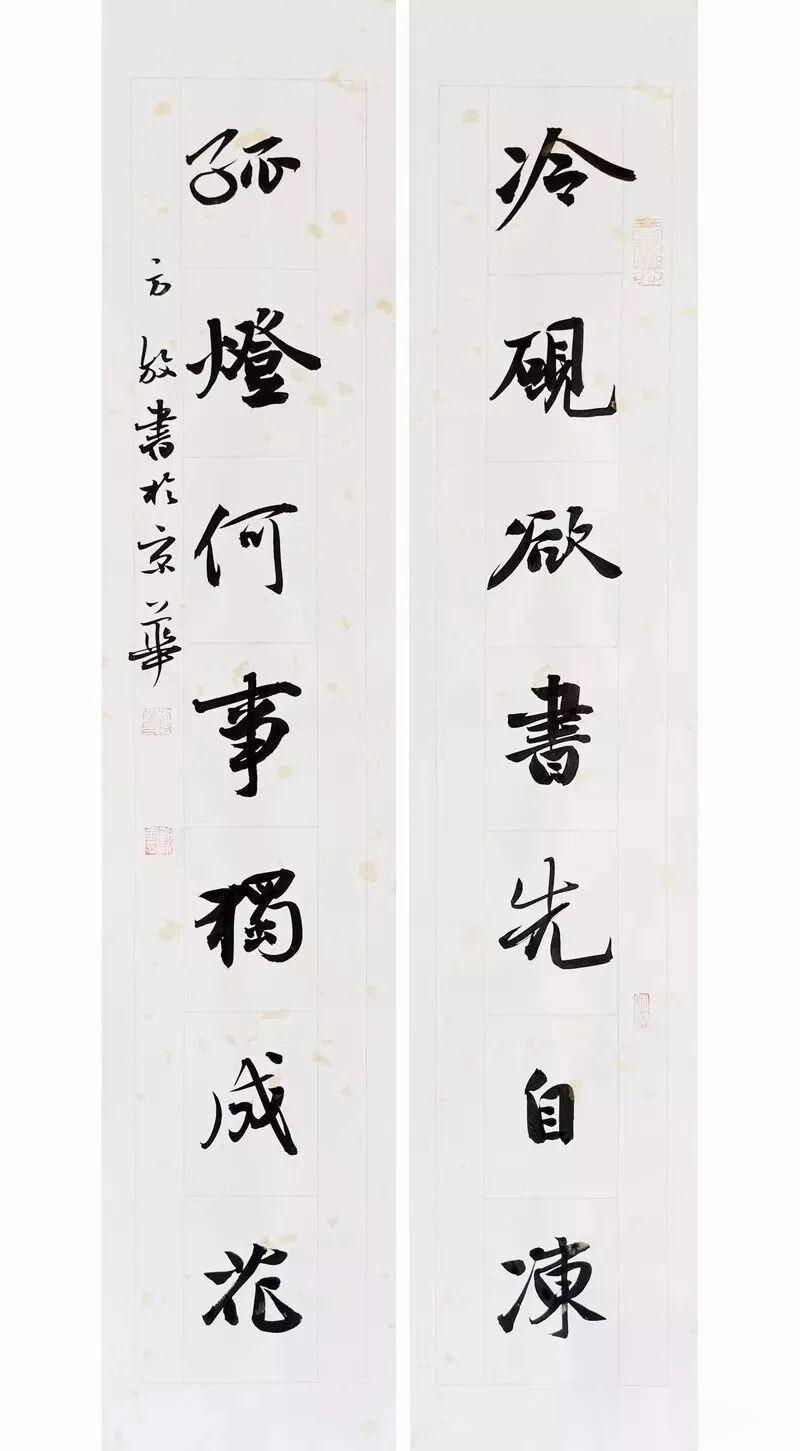 冷硯欲書先自凍
孤燈何事獨成花
方放書於京華